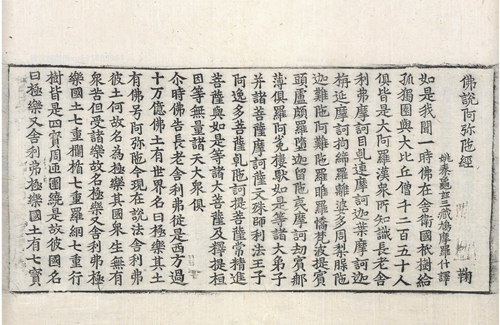 佛說阿弥陁經
姚秦龜茲三藏鳩摩羅什譯
鞠
如是我聞一時佛在舍衛國祇樹給
孤獨園與大比丘僧千二百五十人
俱皆是大阿羅漢衆所知識長老舍
利弗摩訶目乹連摩訶迦葉摩訶迦
栴延摩訶拘絺羅離婆多周梨槃陁
迦難陁阿難陁羅睺羅憍梵波提賓
頭盧頗羅墮迦留陁夷摩訶劫賓那
薄俱羅阿㝹樓馱如是等諸大弟子
并諸菩薩摩訶薩文殊師利法王子
阿逸多菩薩乹陁訶提菩薩常精進
菩薩與如是等諸大菩薩及釋提桓
因等無量諸天大衆俱
尒時佛告長老舍利弗從是西方過
十万億佛土有世界名曰極樂其土
有佛号阿弥陁今現在說法舍利弗
彼土何故名為極樂其國衆生無有
衆苦但受諸樂故名極樂又舍利弗極
樂國土七重欄楯七重羅網七重行
樹皆是四寶周迊圍繞是故彼國名
曰極樂又舍利弗極樂國土有七寶